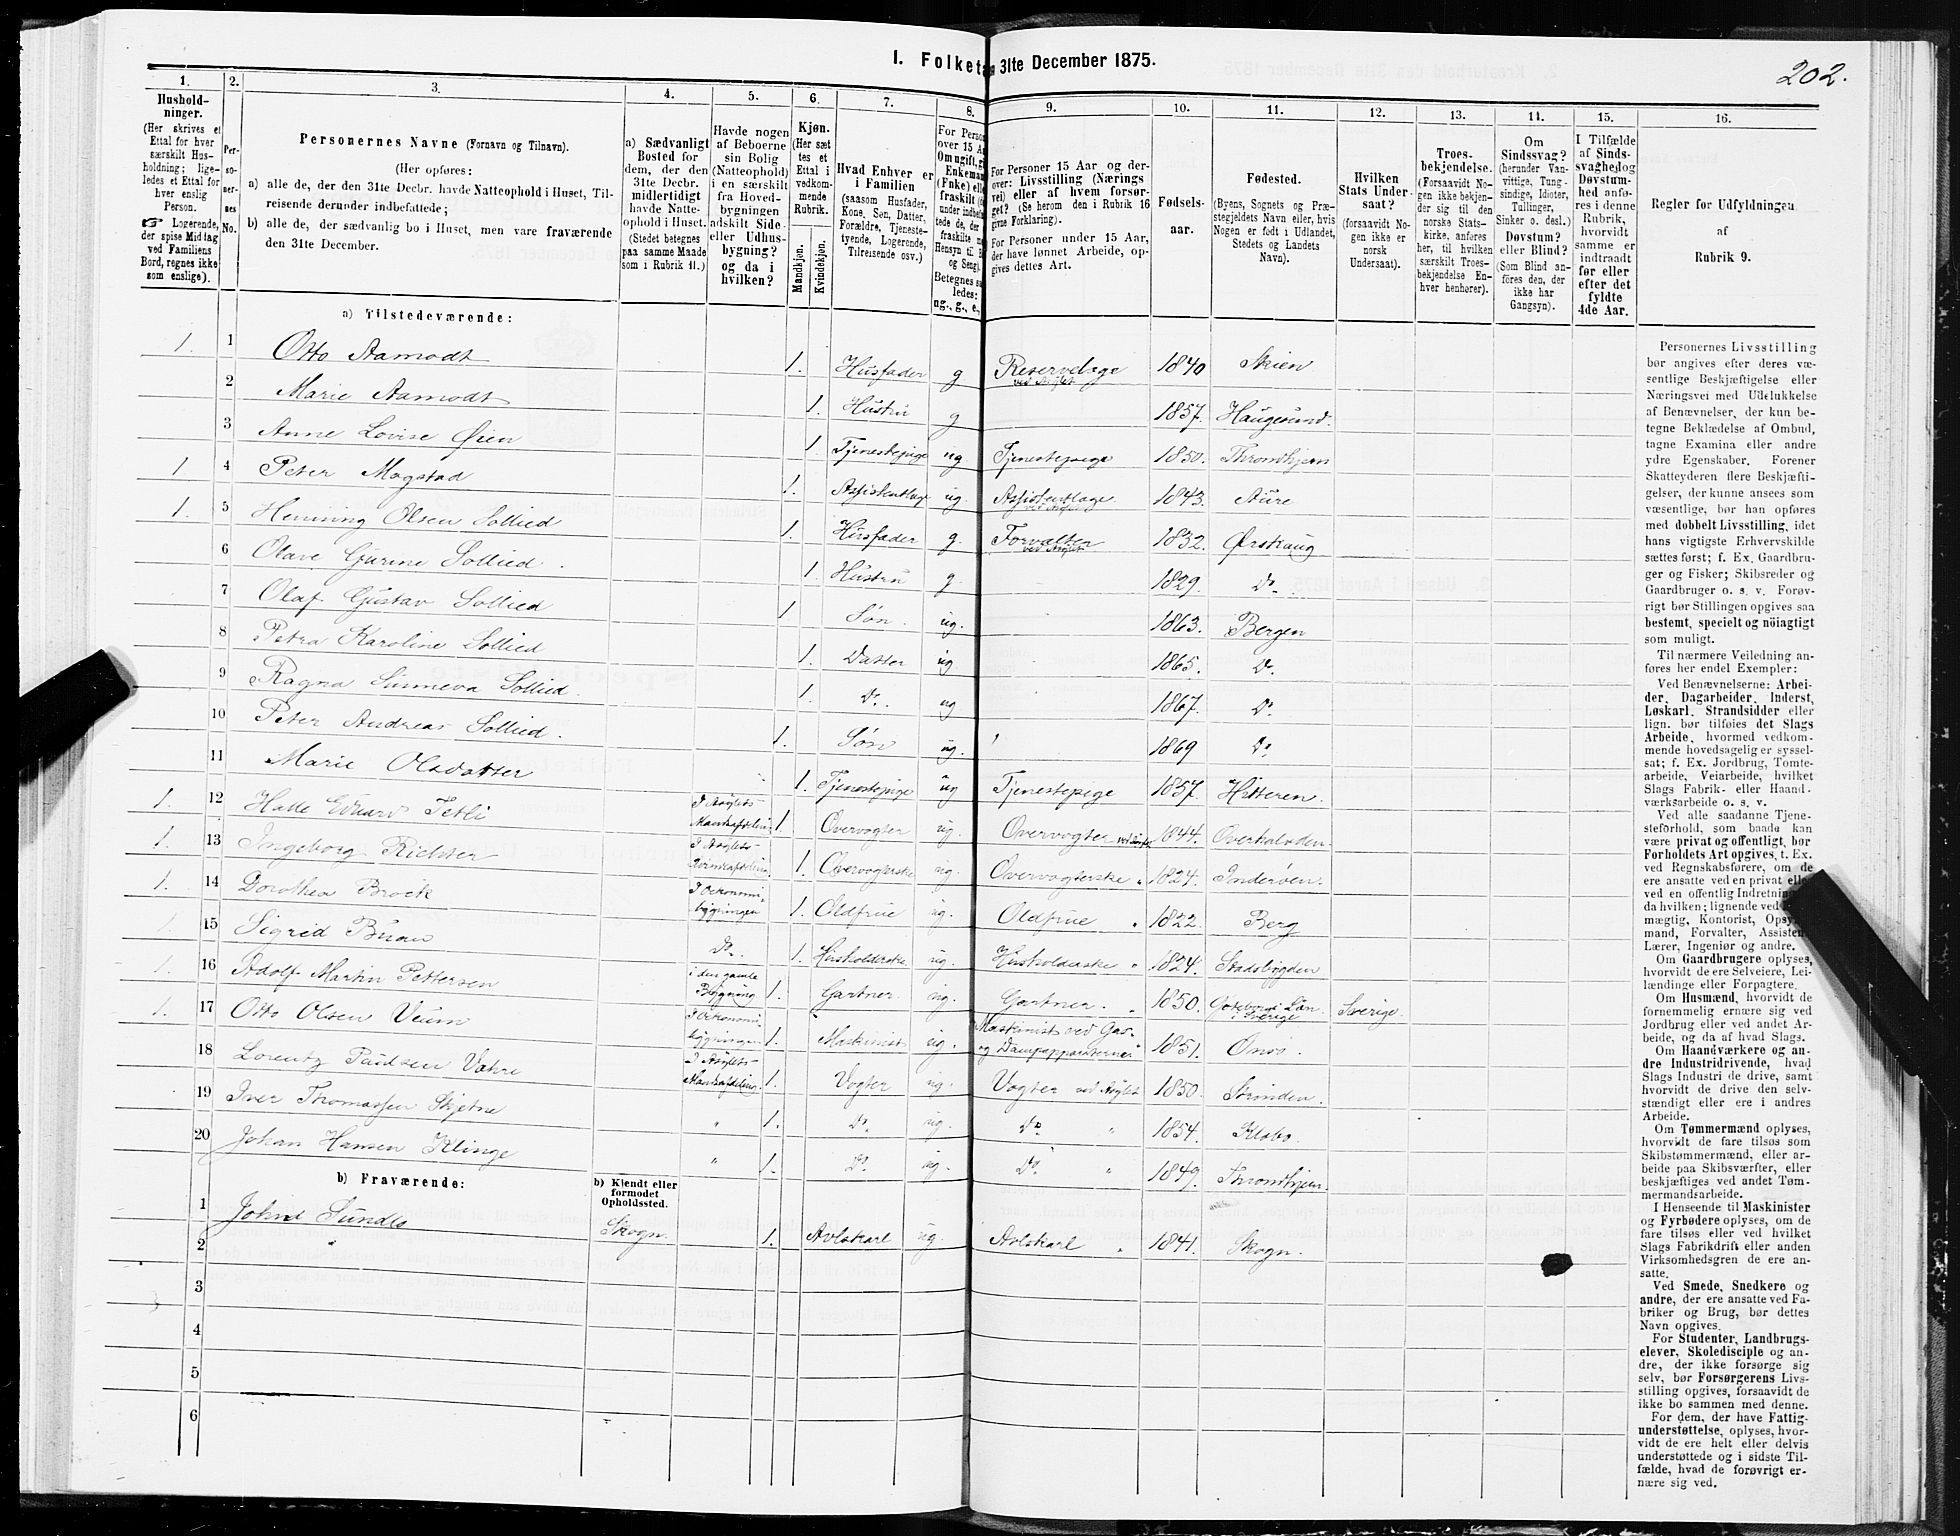 I. Folketæ
31te December 1875.
202.
1.
Hushold-
ninger.
(Her skrives et
Ettal for hver
særskilt Hus-
holdning; lige-
ledes et Ettal for
hver enslig
Person.
☞ Logerende,
der spise Middag
ved Familiens
Bord, regnes ikke
som enslige).
2.
Per-
so-
ner-
nes
No.
3.
Personernes Navne (Fornavn og Tilnavn).
(Her opføres:
a) alle de, der den 31te Decbr. havde Natteophold i Huset, Til-
reisende derunder indbefattede;
b) alle de, der sædvanlig bo i Huset, men vare fraværende
den 31te December.
4.
a) Sædvanligt
Bosted for
dem, der den
31te Decbr.
midlertidigt
havde Natte-
ophold i Huset.
(Stedet betegnes
paa samme Maade
som i Rubrik 11.)
5.
Havde nogen
af Beboerne
sin Bolig
(Natteophold)
i en særskilt
fra Hoved-
bygningen
adskilt Side-
eller Udhus-
bygning?
og da i
hvilken?
6.
Kjøn.
(Her sæt
tes et
Ettal i
vedkom-
mende
Rubrik.
Mandkjøn.
Kvindekjøn.
7.
Hvad Enhver er
i Familien
(saasom Husfader,
Kone, Søn, Datter,
Forældre, Tjeneste-
tyende, Logerende,
Tilreisende osv.)
8.
For Person
over 15 Aa
Om ugift, gi
Enkeman
(Fnke) elle
fraskilt
under indbef
tede de, de
fraskilte
Hensyn til
og Seng).
Betegnes sa
ledes:
ug., g., e.,
9.
For Personer 15 Aar og der-
over: Livsstilling (Nærings
vei) eller af hvem forsør-
get? (Se herom den i Rubrik 16
givne Forklaring).
For Personer under 15 Aar,
der have lønnet Arbeide, op-
gives dettes Art.
10.
Fødsels-
aar.
11.
Fødested.
(Byens, Sognets og Præ-
stegjeldets Navn eller, hvis
Nogen er født i Udlandet,
Stedets og Landets
Navn).
12.
Hvilken
Stats Under-
saat?
(forsaavidt No-
gen ikke er
norsk
Undersaat).
13.
Troes-
bekjendelse.
(Forsaavidt No-
gen ikke bekjen-
der sig til den
norske Stats-
kirke, anføres
her, til hvilken
særskilt Troes-
bekjendelse En-
hver henhører).
14.
Om
Sindssvag?
(herunder Van-
vittige, Tung-
sindige, Idioter,
Tullinger,
Sinker o. desl.)
Døvstum?
eller Blind?
(Som Blind an-
føres den, der
ikke har
Gangsyn).
15.
I Tilfælde
af Sinds-
svaghed og
Døvstum-
hed anfø-
res i denne
Rubrik,
hvorvidt
samme er
indtraadt
før eller
efter det
fyldte
4de Aar.
16.
Regler for Udfyldningen
af
Rubrik 9.
a) Tilstedeværende:
1. 1 Otto Aamodt 1. Husfader g Reservelæge ved Asylet 1840 Skien
2 Marie Aamodt 1. Hustru g 1857. Haugesund.
3 Anne Lovise Øien 1. Tjenestepige ug. Tjenestepige 1850. Throndhjem
1. 4 Peter Mogstad 1. Assistentlæge ug. Assistentlæge ved Asylet 1843. Aure
1. 5 Henning Olsen Sollied 1. Husfader g. Forvalter ved Asylet 1832. Ørskaug
6 Olave Gurine Sollied. 1. Hustru g. 1829. Do.
7 Olaf Gustav Sollied 1. Søn. ug. 1863. Bergen
8 Petra Karoline Sollied 1. Datter ug. 1865. Do.
9 Ragna Sinneva Sollied. 1. Do. ug 1867. Do.
10 Peter Andreas Sollied. 1. Søn ug. 1869 Do
11 Marie Olsdatter 1. Tjenestepige ug Tjenestepige 1857. Hitteren.
1. 12 Halle Eduard Tetli I Asylets Mandsafdeling 1. Overvogter ug. Overvogter ved Asylet 1844. Overhalvden.
1. 13 Ingeborg Richter I Asylets Kvindeafdeling 1. Overvogterske ug. Overvogterske " 1824. Inderøen.
1. 14 Dorothea Brock I Oekonomibygningen 1. Oldfrue ug. Oldfrue " 1822. Berg
1. 15 Sigrid Buan Do. 1. Husholderske ug. Husholderske " 1824. Stadsbygden
1. 16 Adolf Martin Pettersen i den gamle Bygning 1. Gartner ug. Gartner. " 1850. Göteborgs Län i Sverige Sverige.
1. 17 Otto Olsen Veum I Oekonomibygningen 1. Maskinist ug. Maskinist ved Gas- og Dampapparaterne " 1851. Onsö.
18 Lorentz Paulsen Vahre I Asylets Mandsafdeling 1. Vogter ug. Vogter ved Asylet 1850. Strinden.
19 Iver Thomassen Skjetne " 1. Do. ug. Do. " 1854. Klæbo.
20 Johan Hansen Klinge " 1. Do. ug. Do. " 1849. Throndhjem.
b) Fraværende:
b) Kjendt eller
formodet
Opholdssted.
1 John Sundlo Skogn. 1. Avlskarl ug. Avlskarl " 1841. Skogn.
2
3
4
5
6
Personernes Livsstilling
bør angives efter deres væ-
sentlige Beskjæftigelse eller
Næringsvei med Udelukkelse
af Benævnelser, der kun be-
tegne Beklædelse af Ombud,
tagne Examina eller andre
ydre Egenskaber. Forener
Skatteyderen flere Beskjæfti-
gelser, der kunne ansees som
væsentlige, bør han opføres
med dobbelt Livsstilling, idet
hans vigtigste Erhvervskilde
sættes først; f. Ex. Gaardbru-
ger og Fisker; Skibsreder og
Gaardbruger o. s. v. Forøv-
rigt bør Stillingen opgives saa
bestemt, specielt og nöiagtigt
som muligt.
Til nærmere Veiledning an-
føres her endel Exempler:
Ved Benævnelserne: Arbei-
der, Dagarbeider, Inderst,
Løskarl, Strandsidder eller
lign. bør tilføies det Slags
Arbeide, hvormed vedkom-
mende hovedsagelig er syssel-
sat; f. Ex. Jordbrug, Tomte-
arbeide, Veiarbeide, hvilket
Slags Fabrik- eller Haand-
værksarbeide o. s. v.
Ved alle saadanne Tjene-
steforhold, som baade kan
være privat og offentligt, bør
Forholdets Art opgives, t. Ex.
ved Regnskabsførere, om de
ere ansatte ved en privat elle
ved en offentlig Indretning
da hvilken; lignende ved
mægtig, Kontorist, Opsy
mand, Forvalter, Assisten
Lærer, Ingeniør og andre.
Om Gaardbrugere oplyses,
hvorvidt de ere Selveiere, Lei-
lændinge eller Forpagtere.
Om Husmænd, hvorvidt de
fornemmelig ernære sig ved
Jordbrug eller ved andet Ar-
beide, og da af hvad Slags.
Om Haandværkere og an-
dre Industridrivende, hvad
Slags Industri de drive, samt
hvorvidt de drive den selv-
stændigt eller ere i andres
Arbeide.
Om Tømmermænd oplyses,
hvorvidt de fare tilsøs som
Skibstømmermænd, eller ar-
beide paa Skibsværfter, eller
beskjæftiges ved andet Tøm-
mermandsarbeide.
I Henseende til Maskinister
og Fyrbødere oplyses, om de
fare tilsøs eller ved hvilket
Slags Fabrikdrift eller anden
Virksomhedsgren de ere an-
satte.
Ved Smede, Snedkere og
andre, der ere ansatte ved Fa-
briker og Brug, bør dettes
Navn opgives.
For Studenter, Landbrugs-
elever, Skoledisciple og an-
dre, der ikke forsørge sig
selv, bør Forsørgerens Livs-
stilling opgives, forsaavidt de
ikke bo sammen med denne.
For dem, der have Fattig-
understøttelse, oplyses, hvor-
vidt de ere helt eller delvis
understøttede og i sidste Til-
fælde, hvad de forøvrigt er-
nære sig ved.